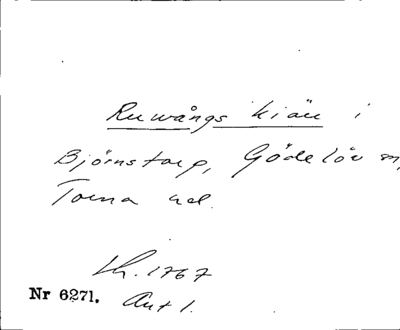 Ruwångs kiäu i
Björnstorp, Gödelöv sn,
Torna hd.
Lh. 1767
Nr 6271. Akt 1.